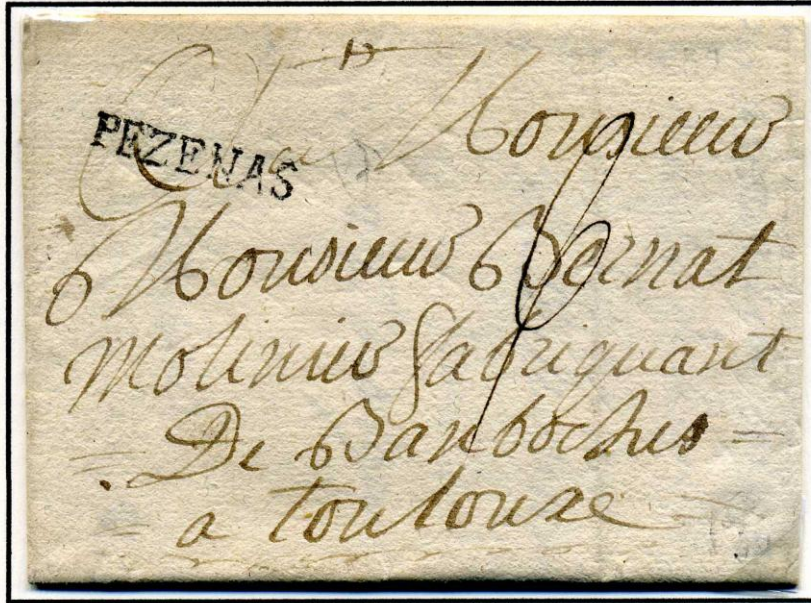 PEZENAS
a Monsieur
Monsieur Bernat
molinier fabriquant
= De Banboches =
= a toulouse =